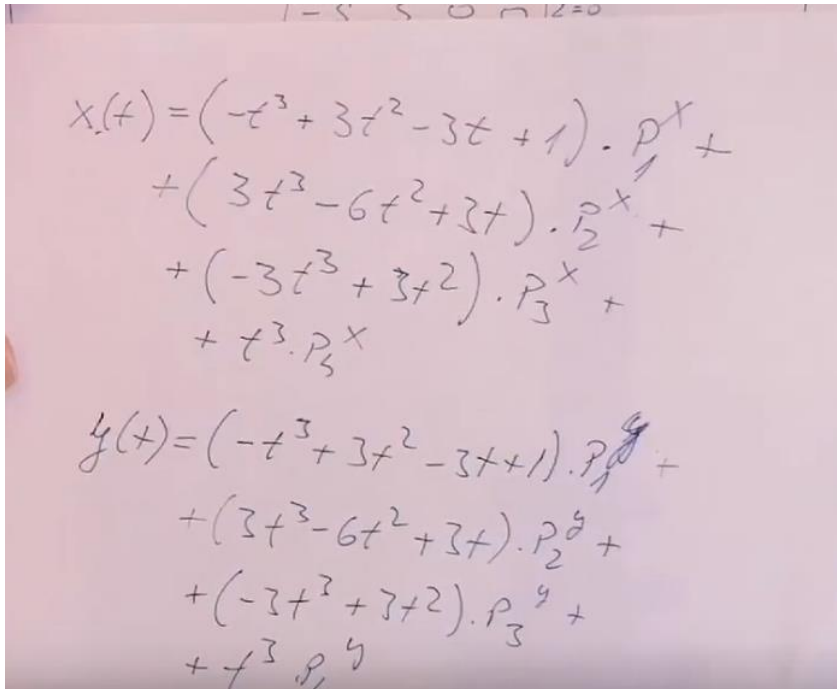 x(t) = (-t³ + 3t² - 3t + 1) · P₁ˣ +
+ (3t³ - 6t² + 3t) · P₂ˣ +
+ (-3t³ + 3t²) · P₃ˣ +
+ t³ · P₄ˣ
y(t) = (-t³ + 3t² - 3t + 1) · P₁ʸ +
+ (3t³ - 6t² + 3t) · P₂ʸ +
+ (-3t³ + 3t2) · P₃ʸ +
+ t³ P ʸ